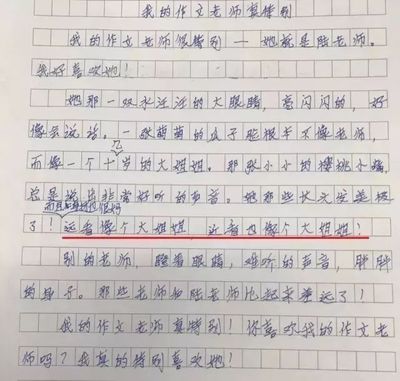 我的作文老师真特别
我的作文老师很特别—她就是陆老师。
我好喜欢她!
她那一双水汪汪的大眼睛,亮闪闪的,好
像会说话。一张萌萌的瓜子脸根本不像老师,
而像一个十几岁的大姐姐。那张小小的樱桃小嘴,
总是说出非常好听的声音。她那些长文发美极
而且的身材也很好
了!远看像个大姐姐,近看也像个大姐姐!
别的老师,瞪着眼睛,难听的声音,胖胖
的身子。那些老师和陆老师比起来差远了!
我的作文老师真特别!你喜欢我的作文老
师吗?我真的特别喜欢她!